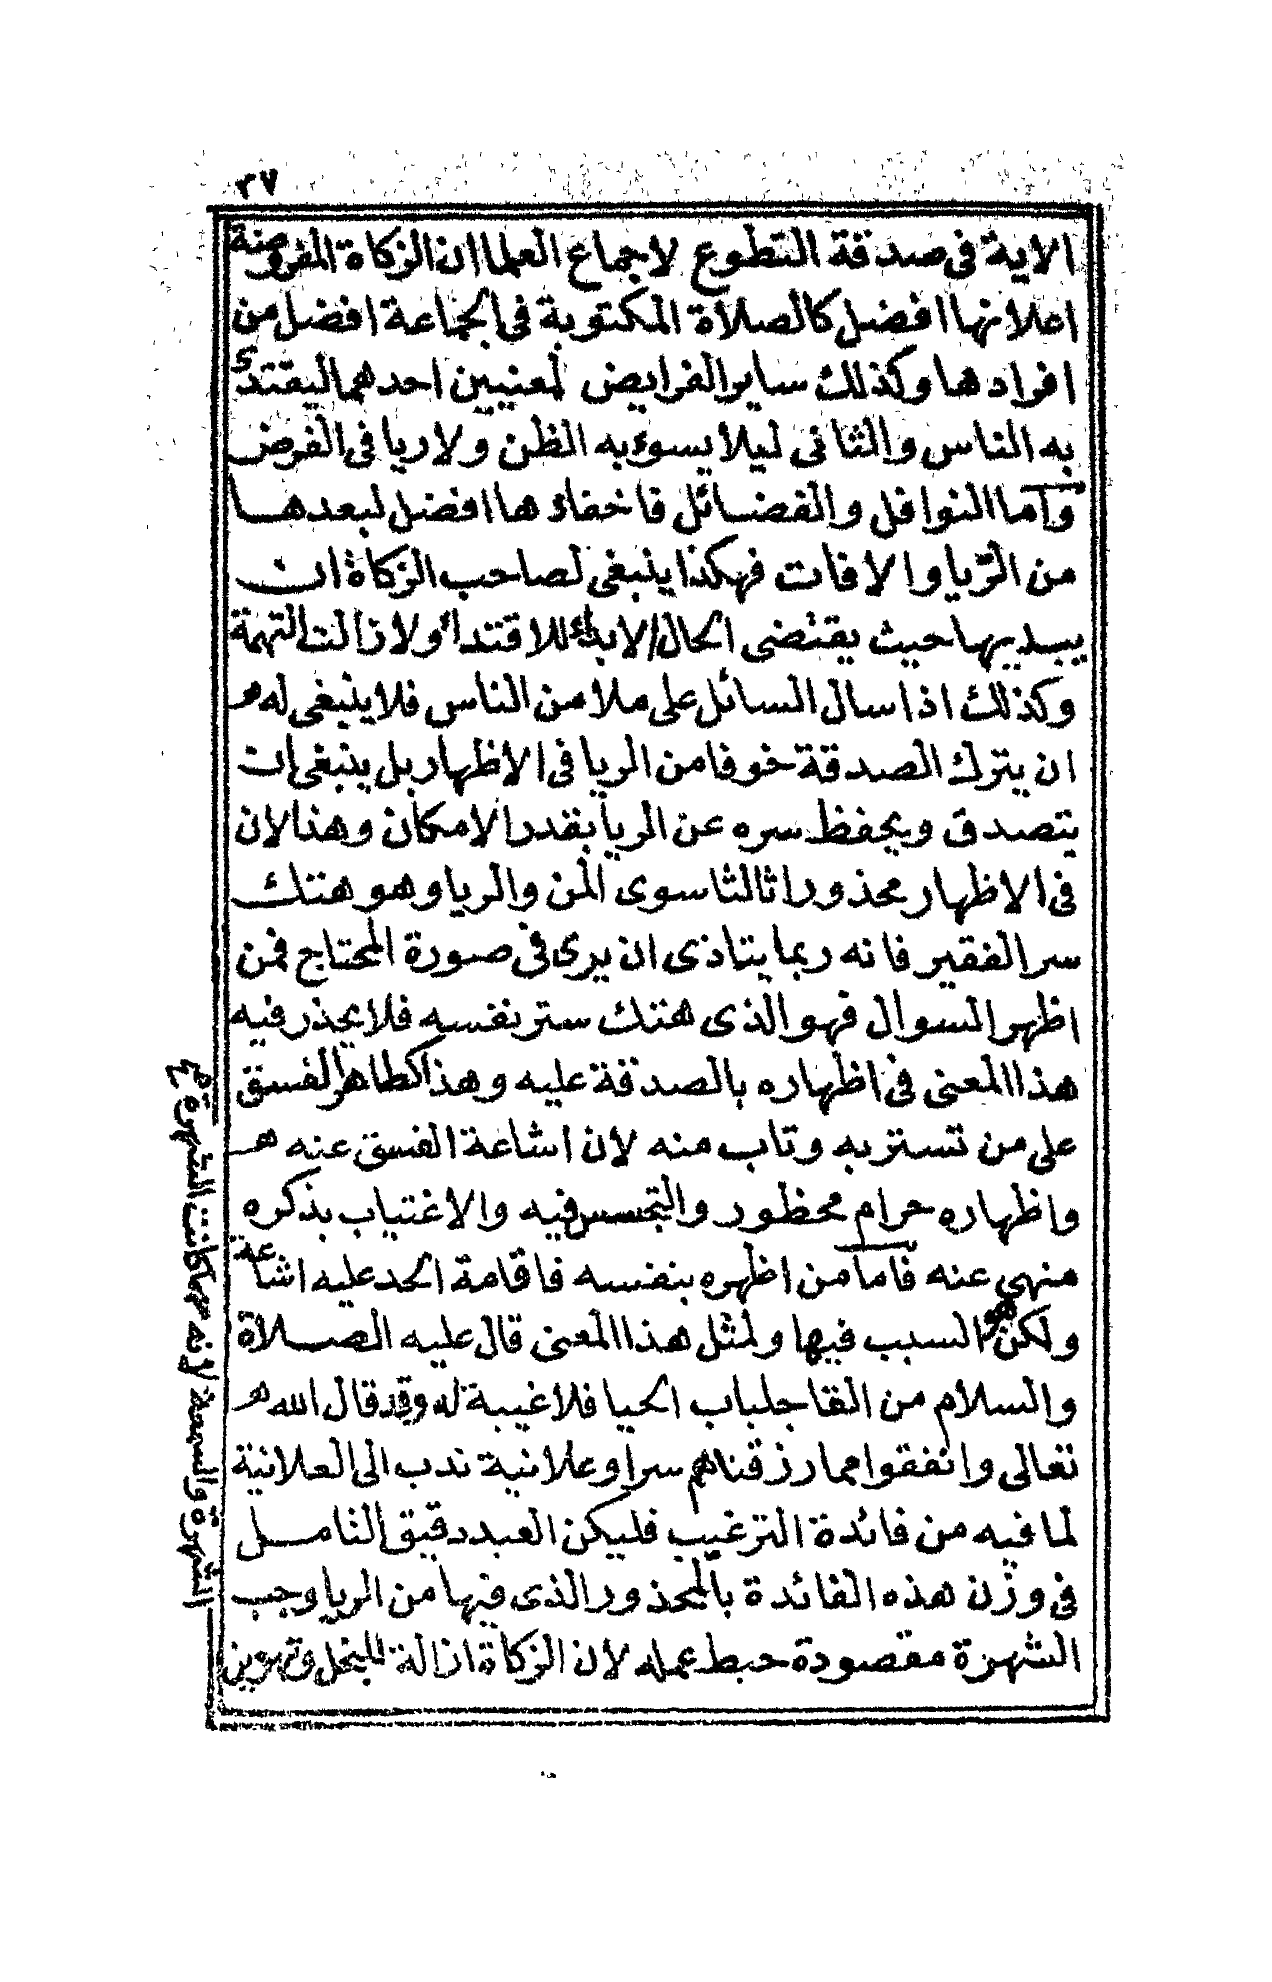 ٣٧
الاية فى صدقة التطوع لاجماع العلما ان الزكاة المفروضة
اعلانها افضل كالصلاة المكتوبة فى الجماعة افضل من
افرادها وكذلك ساير الفرايض لمعنيين احدهما ليقتدى
به الناس والثانى ليلا يسوء به الظن ولا ريا فى الفرض
واما النوافل والفضائل فاخفاؤها افضل لبعدها
من الريا والافات فهكذا ينبغى لصاحب الزكاة ان
يبديها حيث يقتضى الحال الابداء للاقتداء ولازالت التهمة
وكذلك اذا سال السائل على ملا من الناس فلا ينبغى له
ان يترك الصدقة خوفا من الريا فى الاظهار بل ينبغى ان
يتصدق ويحفظ سره عن الريا بقدر الامكان وهذا لان
فى الاظهار محذورا ثالثا سوى المن والريا وهو هتك
سر الفقير فانه ربما يتاذى ان يرى فى صورة المحتاج فمن
اظهر السوال فهو الذى هتك ستر نفسه فلا يحذر فيه
هذا المعنى فى اظهاره بالصدقة عليه وهذا كاظهار الفسق
على من تستر به وتاب منه لان اشاعة الفسق عنه
واظهاره حرام محظور والتجسس فيه والاغتياب بذكره
منهى عنه فاما من اظهره بنفسه فاقامة الحد عليه اشاعة
ولكن هو السبب فيها ولمثل هذا المعنى قال عليه الصلاة
والسلام من القا جلباب الحيا فلا غيبة له وقد قال الله
تعالى وانفقوا مما رزقناهم سرا وعلانية ندب الى العلانية
لما فيه من فائدة الترغيب فليكن العبد دقيق التامل
فى وزن هذه الفائدة بالمحذور الذى فيها من الريا وجب
الشهرة مقصودة حبط عمله لان الزكاة ازالة للبخل وتهوين
الشهرة والسمعة لانه مهما كانت الشهرة صح